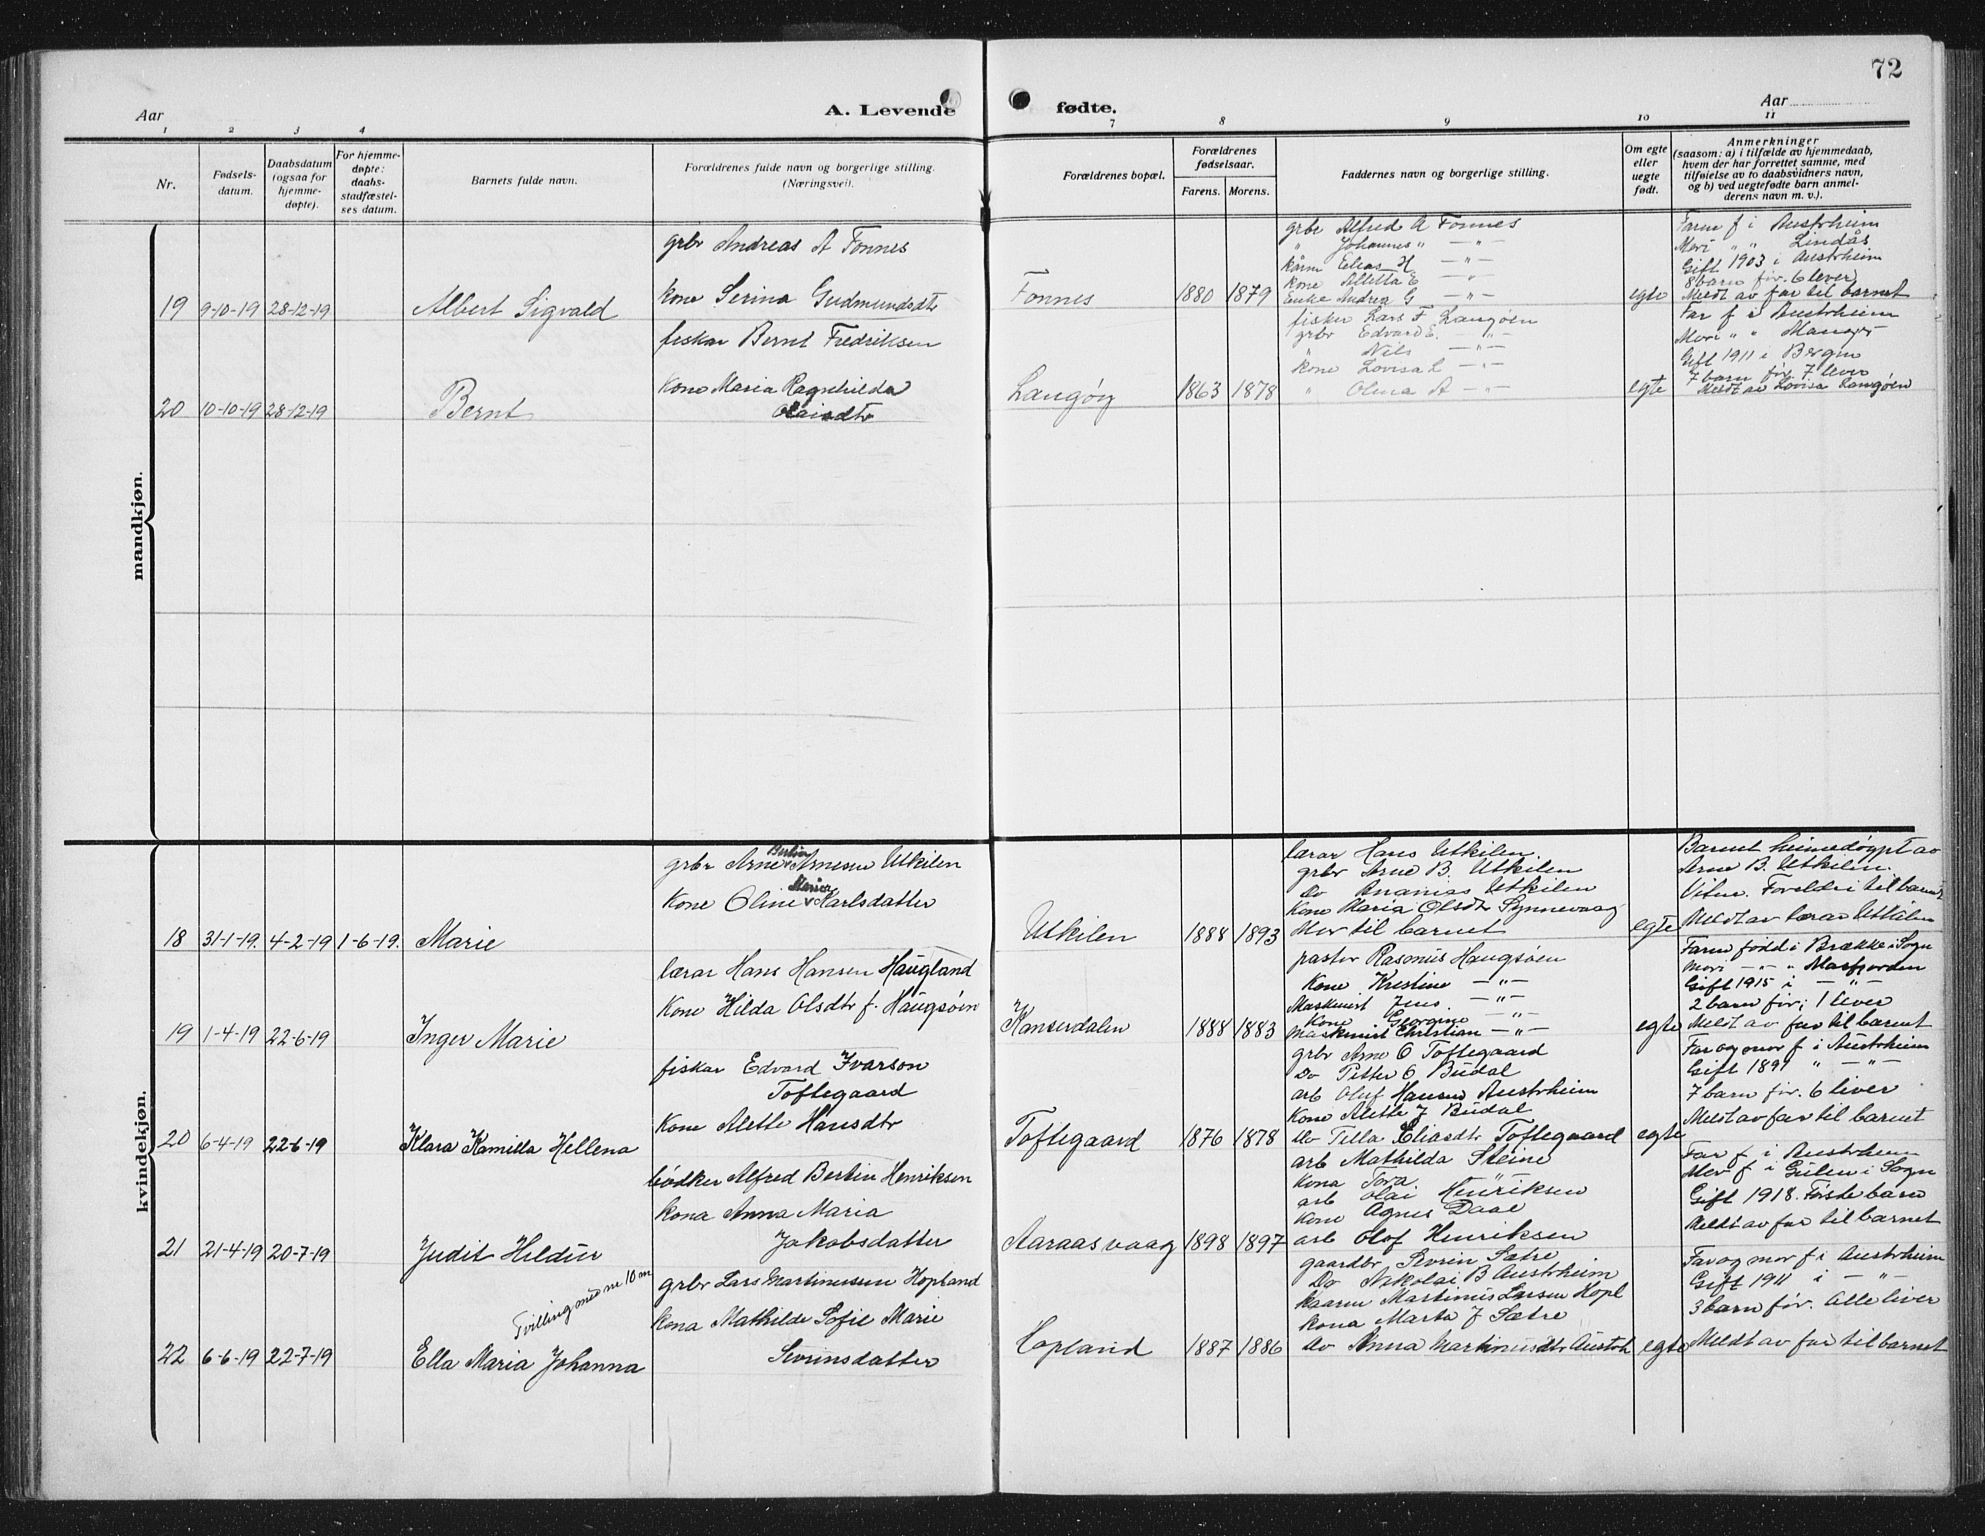 72
Aar
A. Levende
fødte.
Aar
1 2 3 4
7 8 9 10 11
Nr.
Fødsels-
datum.
Daabsdatum
(ogsaa for
hjemme-
døpte).
For hjemme-
døpte:
daabs-
stadfæstel-
ses datum.
Barnets fulde navn.
Forældrenes fulde navn og borgerlige stilling.
(Næringsvei).
Forældrenes bopæl.
Forældrenes
fødselsaar.
Farens. Morens.
Faddernes navn og borgerlige stilling.
Om egte
eller
uegte
født.
Anmerkninger
(saasom: a) i tilfælde av hjemmedaab,
hvem der har forrettet samme, med
tilføielse av to daabsvidners navn,
og b) ved uegtefødte barn anmel-
derens navn m. v.).
mandkjøn.
19 9-10-19 28-12-19
Albert Sigvald
grbr Andreas A Fonnes
kone Serina Gudmundsdtr
Fonnes
1880 1879
grbr Alfred A Fonnes
" Johannes " —"—
kårm Elias H —"—
kone Alletta E —"—
Enke Andrea G —"—
egte
Faren f i Austrheim
Mori " " Lindås
Gift 1903 i Austrheim
8 barn før. 6 lever
Meldt av far til barnet
20 10-10-19 28-12-19
Bernt
fisker Bernt Fredriksen
kone Maria Ragnhilda
Olaisdtr
Langøy
1863 1878
fisker Lars F Langøen
grbr Edvard E. —"—
" Nils —"—
kone Lovisa L —"—
" Olina A —"—
egte
Far f i Austrheim
Mori " " Manger
Gift 1911 i Bergen
7 barn før 7 lever
Meldt av Lovisa Langøen
kvindekjøn.
18 31-1-19. 4-2-19 1-6-19.
Marie
grbr Arne Bertin Arnesen Utkilen
Kone Oline Maria Karlsdatter
Utkilen
1888 1893
lærar Hans Utkilen
grbr Arne B. Utkilen
Do Ananias Utkilen
Kone Maria Olsdtr Synnevaag
Mor til barnet
egte
Barnet heimedøypt av
Arne B. Utkilen.
Vitne. Foreldri til barnet
Meldt av lærar Utkilen
19 1-4-19 22-6-19
Inger Marie
lærar Hans Hansen Haugland
Kone Hilda Olsdtr f. Haugsøen
Kanserdalen
1888 1883
pastor Rasmus Haugsøen
Kone Kristine —"—
Maskinist Jens —"—
Kone Georgine —"—
Maskinist Christian —"—
egte
Faren fødd i Brække i Sogn
Mori —"— " Masfjorden
Gift 1915 i —"—
2 barn før; 1 lever
Meldt av far til barnet
20 6-4-19 22-6-19
Klara Kamilla Hellena
fiskar Edvard Ivarson
Toftegaard
Kone Alette Hansdtr
Toftegaard
1876 1878
grbr Arne O Toftegaard
Do Petter O Budal
arb Oluf Hansen Austrheim
Kone Alette J Budal
Do Tilla Eliasdtr Toftegaard
egte
Far og mor f i Austrheim
Gift 1897 " —"—
7 barn før. 6 liver
Meldt av far til barnet
21 21-4-19 20-7-19
Judit Hildur
bødker Alfred Bertin Henriksen
kona Anna Maria
Jakobsdatter
Aaraasvaag
1898 1897
arb Mathilda Steine
Kona Tora "
arb Olai Henriksen
Kone Agnes Daae
arb Olof Henriksen
Far f i Austrheim
Mor f i Gulen i Sogn
Gift 1918. Første barn
Meldt av far til barnet
22 6-6-19 22-7-19
Tvilling med nr 10 m
Ella Maria Johanna
grbr Lars Martinusen Hopland
kona Mathilde Sofie Marie
Sevrinsdatter
Hopland
1887 1886
gaardbr Sevrin Sætre
Do Nikolai B Austrheim
kaarm Martinus Larsen Hopl
kona Marta J Sætre
Do Anna Martinusdtr Austrh
egte
Far og mor f i Austrheim
Gift 1911 i —"—
3 barn før. Alle liver
Meldt av far til barnet